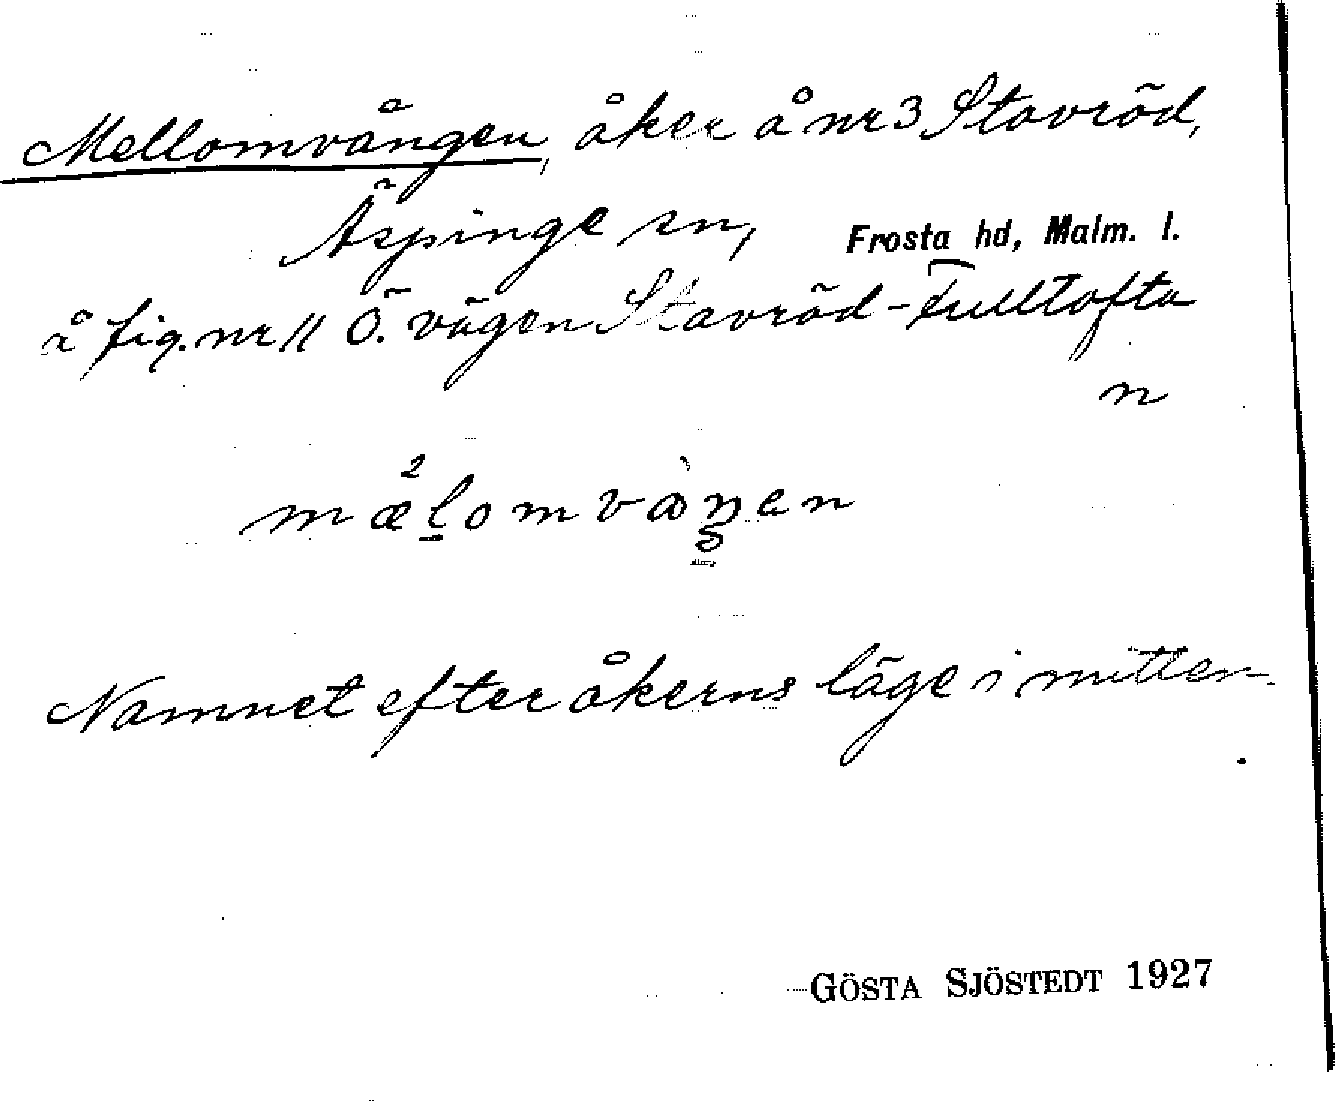 Mellomvången, åker å nr 3 Stavröd,
Äspinge sn, Frosta hd, Malm. l.
å fig. nr 11 Ö. vägen Stavröd-Fulltofta
n
mælomvaŋen
Namnet efter åkerns läge i mitten.
GÖSTA SJÖSTEDT 1927